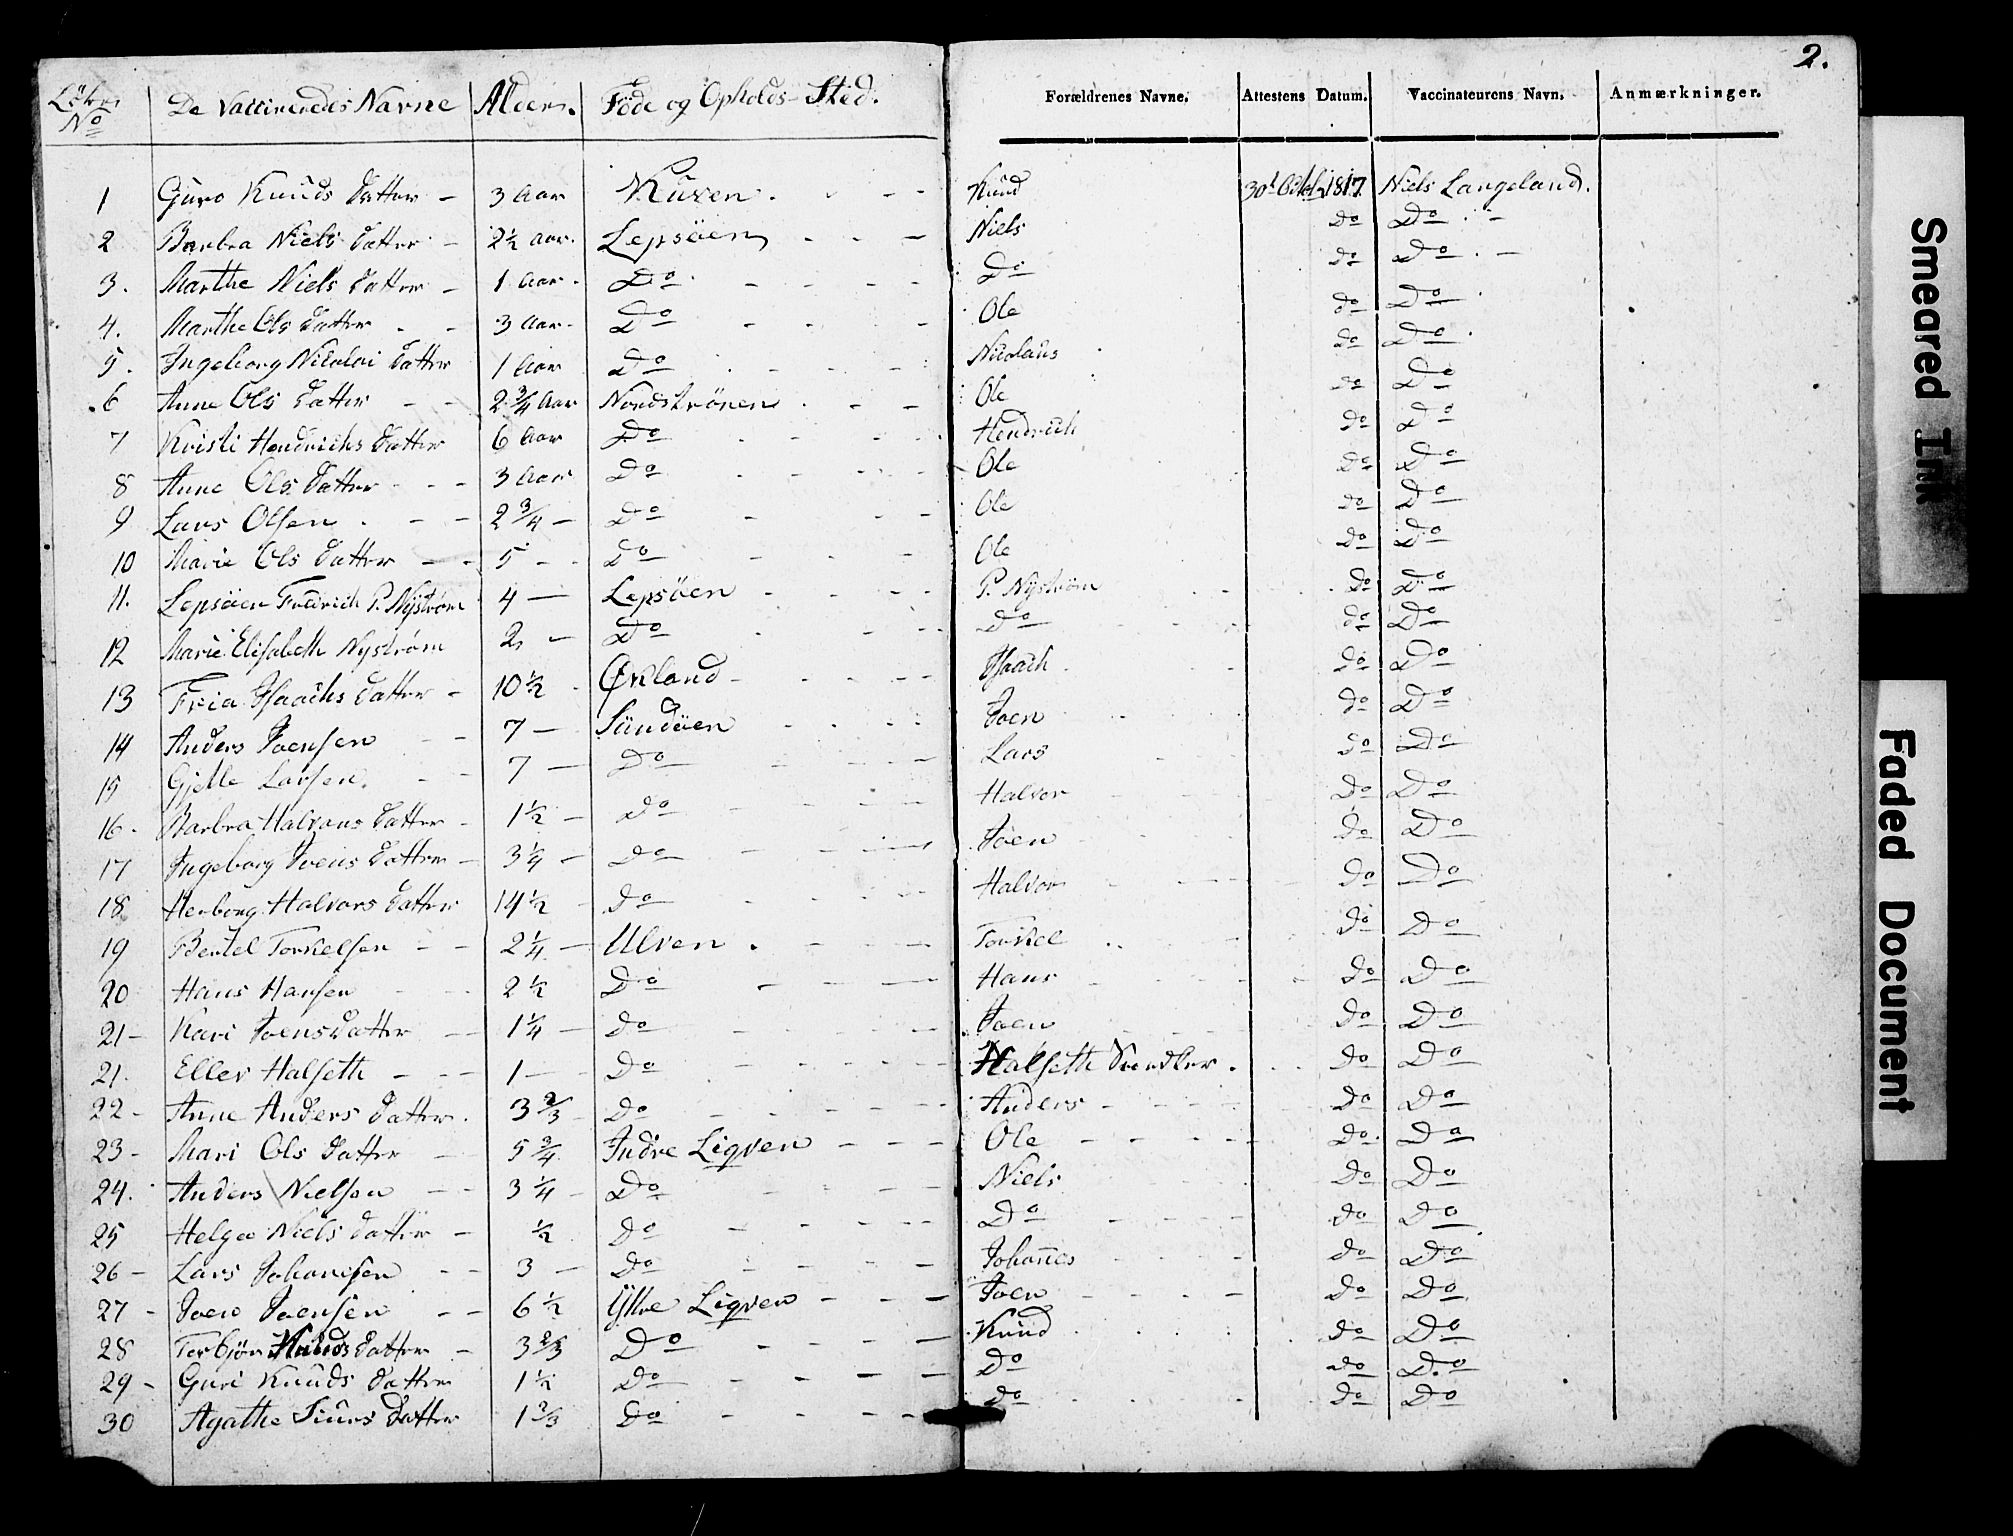 2.
Löbe No De Vaccineredes Navne Alder. Föde og Opholds-Sted. Forældrenes Navne. Attestens Datum. Vaccinateurens Navn. Anmærkninger.
1 Guro Knuds Datter - 3 Aar Kuven. - - Knud 1817. Niels Langeland.
2 Barbra Niels Datter - 2½ Aar. Lepsöen - - - Niels Do Do - -
3. Marthe Niels Datter - 1 Aar. Do - - - - Do Do Do - -
4. Marthe Ols Datter - - 3 Aar. Do - - - - Ole Do Do
5. Ingeborg Nicolai Datter 1 Aar Do - - - - Nicolaus Do Do
6 Anne Ols Datter - - 2¾ Aar Nordströnen - - - Ole Do Do
7 Kristi Hendrichs Datter 6 Aar Do - - - - Hendrich Do Do
8 Anne Ols Datter - - - 3 Aar Do - - - - Ole Do Do
9 Lars Olsen - - - 2¾ - Do - - - Ole Do Do
10 Marie Ols Datter - - 5 - - Do - - - Ole Do Do
11. Lepsöen Fredrich P. Nyström 4 - Lepsöen - - - - P. Nyström Do Do
12 Marie Elisabeth Nyström 2 - Do - - - Do Do Do
13 Isaachs Datter - 10½ - Øvland - - - - Isaach Do Do
14 Anders Joensen - - 7 - Sundöen - - - - Joen Do Do
15 Gjelle Larsen. - - 7 - Do - - - - Lars Do Do
16. Barbra Halvors Datter - 1½ - Do - - - - Halvor Do Do
17 Ingeborg Joens Datter - 3¼ - Do - - - - Joen Do Do
18 Herborg Halvors Datter 14½ - Do - - - - Halvor Do Do
19 Bertel Torkelsen - - 2¼ - Ulven. - - - - Torkel Do Do
20 Hans Hansen - - 2½ Do - - - Hans Do Do
21 - Kari Joens Datter - - 1¼ - Do - - - - Joen Do Do
21. Eller Halseth - - - 1 - - Do - - - - Halseth Do Do
22 - Anne Anders Datter. 3⅔ - Do - - - - Anders - Do Do
23 - Mari Ols Datter - 5¾ Indre Liqven - - - Ole - - - - Do Do
24. Anders Nielsen - - 3¼ - Do - - - - Niels Do Do
25 Helga Niels Datter - ½ Do - - - - Do - - - - Do Do
26 - Lars Johansen - - 3 - Do - - - - Johanes - - Do Do
27 - Joen Joensen - - 6½ Ytre Liqven - - - Joen - - - - Do Do
28 Torbjör Knuds Datter - 3⅔ Do - - - Knud Do Do
29 - Guri Knuds Datter 1½ Do - - - - Do Do Do
30 Agathe Siurs Datter 1⅔ Do - - - - Do Do Do
Smeared Ink
Faded Document